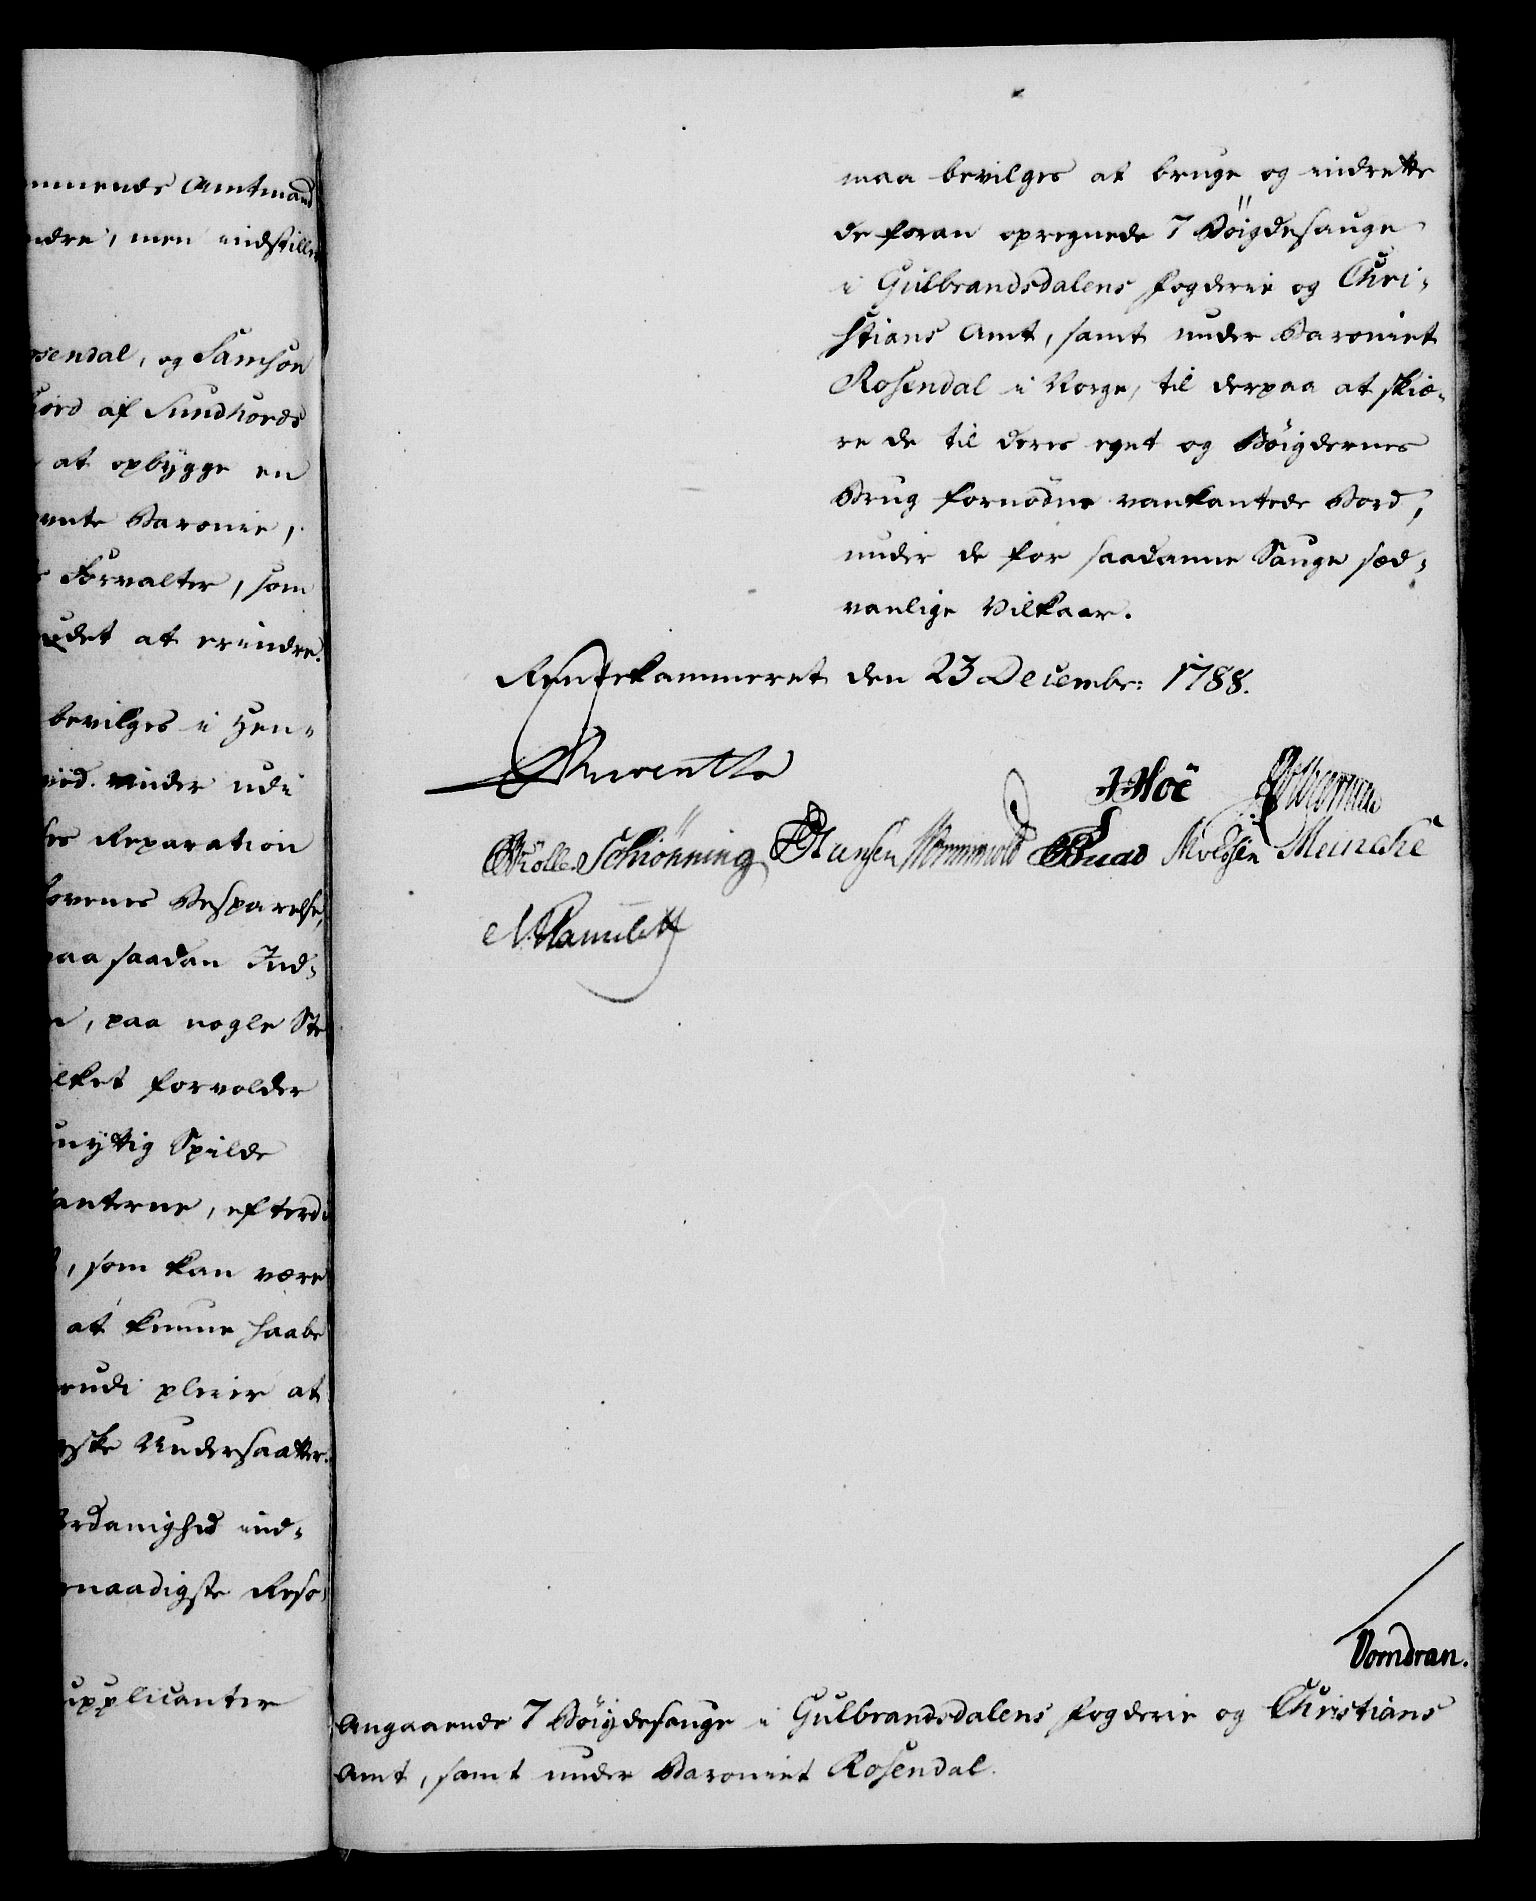 mmende Amtmand
ndre, men indstille
osendal, og Samson
fiord af Sundhords
at opbygge en
vnte Baronie,
Forvalter, som
udet at erindre.
bevilges i Hen-
viid. vinder udi
Reparation
kovenes Besparelse,
paa saadan Ind-
, paa nogle Ste
lket forvolder
unyttig Spilde
anterne, efterdi
, som kan være
at kunne haabe
rudi pleier at
ske Undersaatter.
erdanighed ind-
naadigste Reso-
upplicanter
maa bevilges at bruge og indrette
de foran opregnede 7 Böigdesauge
i Gulbrandsdalens Fogderie og Chri-
stians Amt, samt under Baroniet
Rosendal i Norge, til derpaa at skiæ-
re de til deres eget og Böigdernes
Brug fornödne vankantede Bord,
under de for saadanne Sauge sæd-
vanlige Vilkaar.
Rentekammeret den 23 Decembr: 1788.
Reventlo
Hoë
Schiönning Hansen Meincke
Vorndran.
Angaaende 7 Böigdesauge i Gulbrandsdalens Fogderie og Christians
Amt, samt under Baroniet Rosendal.